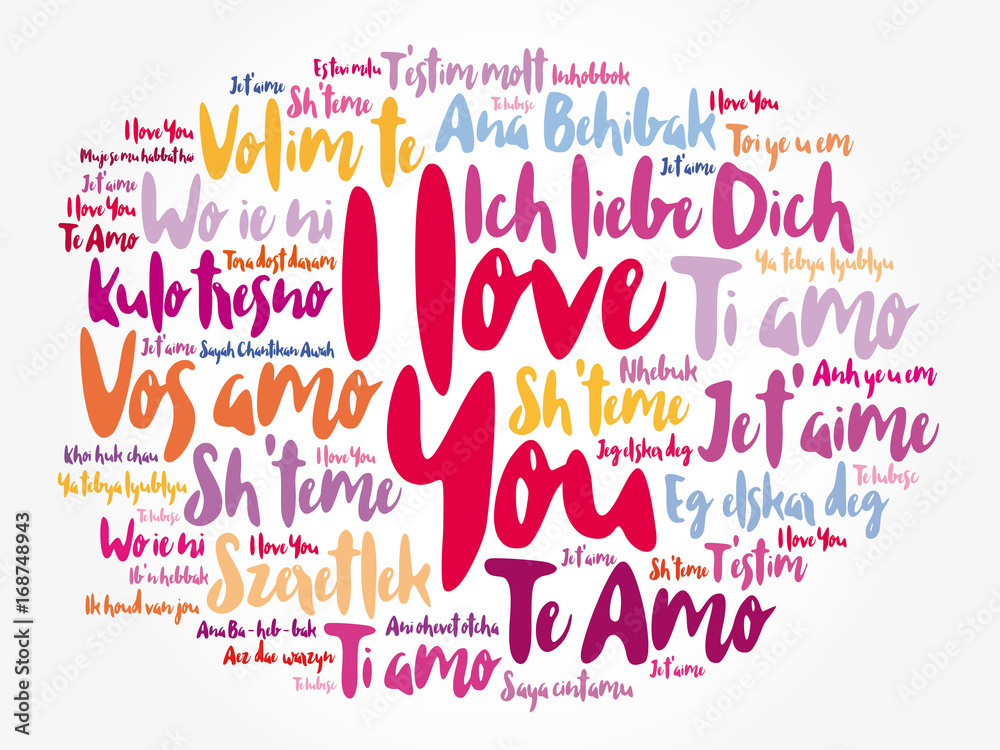 Es tevi milu
T'estim molt
Inhobbok
Jet'aime
Sh'teme
Te Iubesc
I love You
I love You
Volim te
Ana Behibak
Toi ye u em
Muje se mu habbat hai
Jet'aime
Jet'aime
Wo ie ni
Ich liebe Dich
I love You
Te Amo
Tora dost daram
I love
You
Ya tebya lyublyu
Kulo tresno
Ti amo
Jet'aime
Sayah Chantikan Awah
Vos amo
Sh'teme
Nhebuk
Anh ye u em
Jet'aime
Khoi huk chau
I love You
Jeg elsker deg
Ya tebya lyublyu
Sh'teme
Te Iubesc
Eg elskar deg
Te Iubesc
Wo ie ni
I love You
I love You
Ib'n hebbak
Szeretlek
Jet'aime
Sh'teme
T'estim
Ik houd van jou
Te Amo
Ana Ba-heb-bak
Ani ohevet otcha
Aez dae warzyn
Ti amo
Jet'aime
Te Iubesc
Saya cintamu
Adobe Stock | #168748943
Adobe Stock